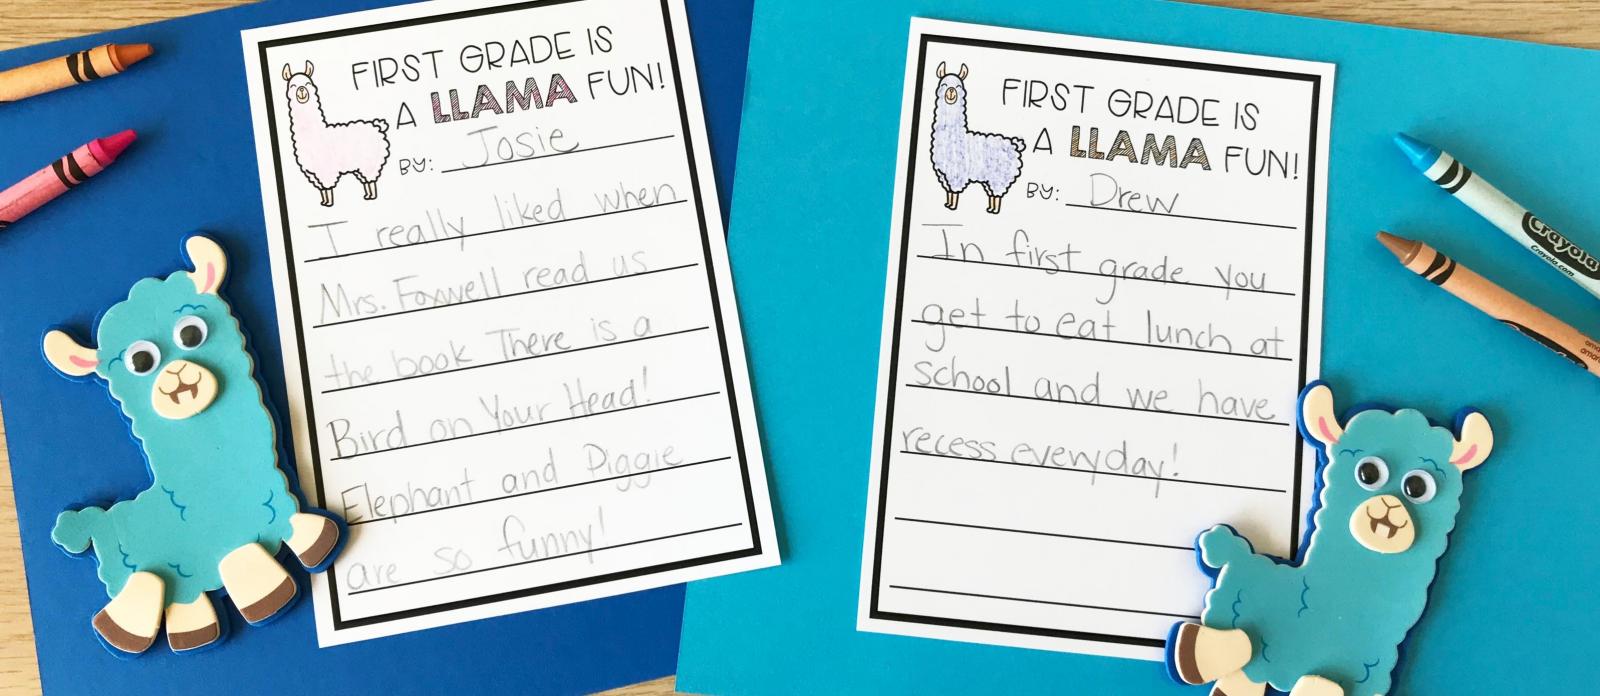 FIRST GRADE IS
A LLAMA FUN!
BY: Josie
I really liked when
Mrs. Foxwell read us
the book There is a
Bird on Your Head!
Elephant and Piggie
are so funny!
FIRST GRADE IS
A LLAMA FUN!
BY: Drew
In first grade you
get to eat lunch at
school and we have
recess everyday!
Crayola
Crayola.com